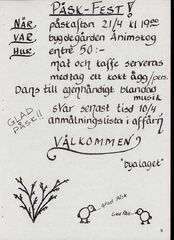 PÅSK-FEST!
NÄR. påskafton 21/4 kl 19.00
VAR. bygdegården Ånimskog
HUR. entré 50:-
mat och kaffe serveras
medtag ett kokt ägg/pers.
Dans till egenhändigt blandad
musik
GLAD PÅSK!!
svar senast tisd 10/4
anmälningslista i affärn
VÄLKOMMEN?
"byalaget"